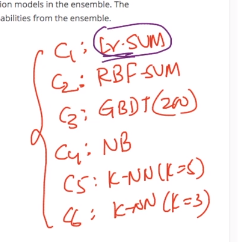 ion models in the ensemble. The
abilities from the ensemble.
C1: Lr.SUM
C2: RBF-SUM
C3: GBDT(200)
C4: NB
C5: K-NN(K=5)
C6: K-NN(K=3)